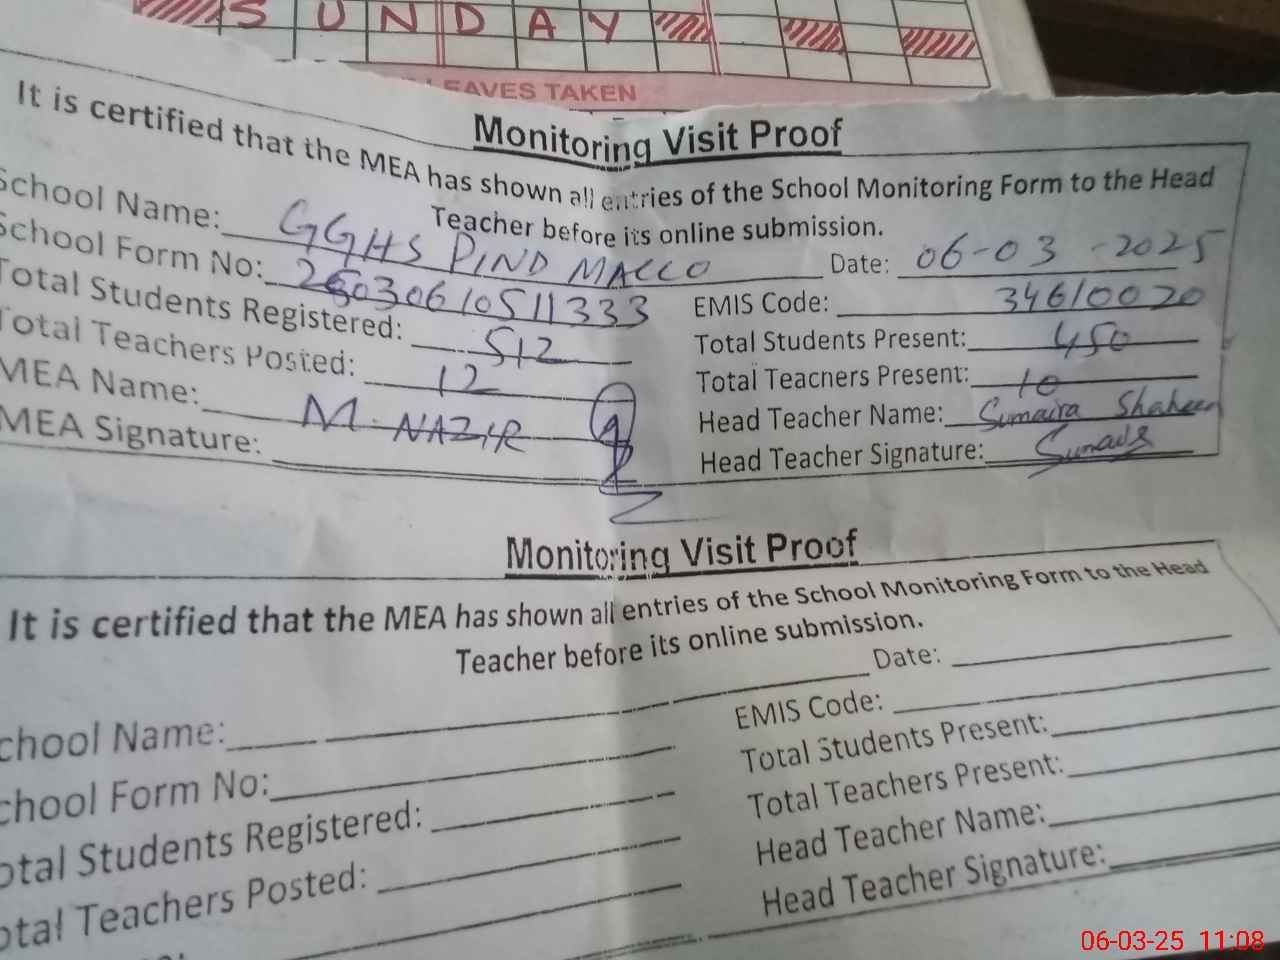 SUNDAY
LEAVES TAKEN
Monitoring Visit Proof
It is certified that the MEA has shown all entries of the School Monitoring Form to the Head
Teacher before its online submission.
School Name: GGHS PIND MALLO Date: 06-03-2025
School Form No: 25030610511333 EMIS Code: 34610020
Total Students Registered: 512 Total Students Present: 450
Total Teachers Posted: 12 Total Teachers Present: 10
MEA Name: M. NAZIR Head Teacher Name: Sumaira Shaheen
MEA Signature: Head Teacher Signature: Sumaira
Monitoring Visit Proof
It is certified that the MEA has shown all entries of the School Monitoring Form to the Head
Teacher before its online submission.
chool Name: Date:
chool Form No: EMIS Code:
otal Students Registered: Total Students Present:
otal Teachers Posted: Total Teachers Present:
Head Teacher Name:
Head Teacher Signature:
06-03-25 11:08